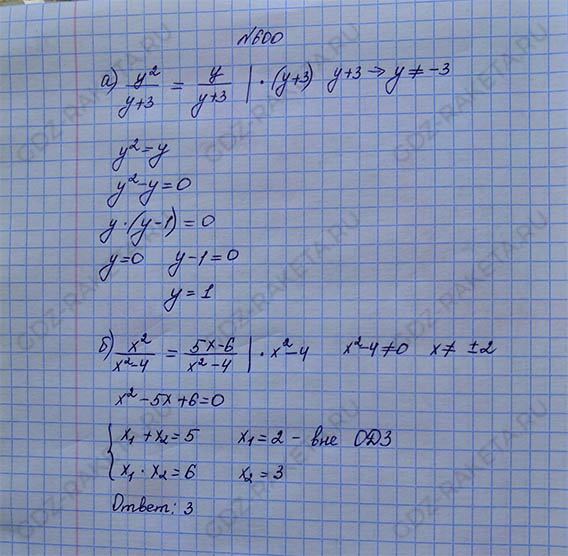 №600
а) y²/(y+3) = y/(y+3) | · (y+3) y+3 → y ≠ -3
y² = y
y² - y = 0
y · (y - 1) = 0
y = 0 y - 1 = 0
y = 1
б) x²/(x²-4) = (5x-6)/(x²-4) | · x²-4 x²-4 ≠ 0 x ≠ ±2
x² - 5x + 6 = 0
{ x₁ + x₂ = 5 x₁ = 2 - вне ОДЗ
x₁ · x₂ = 6 x₂ = 3
Ответ: 3
GDZ-RAKETA.RU
GDZ-RAKETA.RU
GDZ-RAKETA.RU
GDZ-RAKETA.RU
GDZ-RAKETA.RU
GDZ-RAKETA.RU
GDZ-RAKETA.RU
GDZ-RAKETA.RU
GDZ-RAKETA.RU